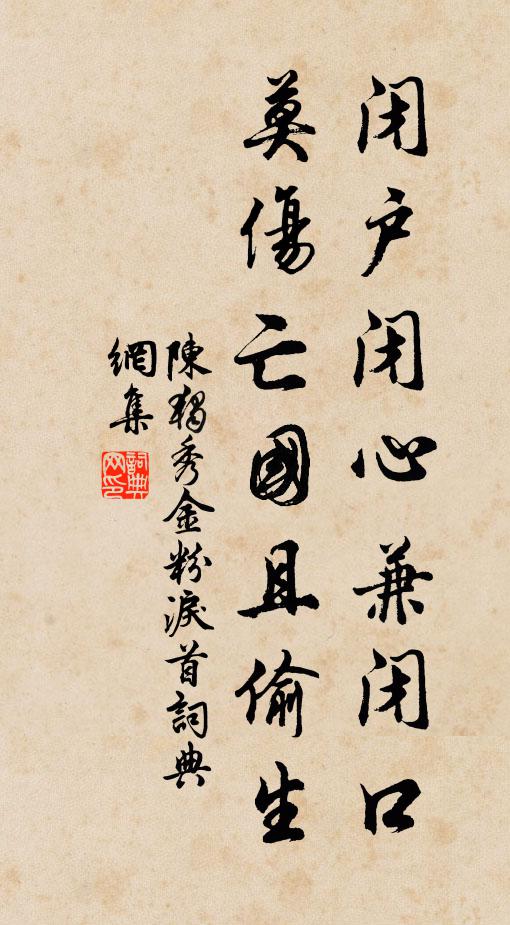 闭户闭心兼闭口
莫傷亡國且偷生
陳獨秀金粉淚首詞典
網集
詞典
网印